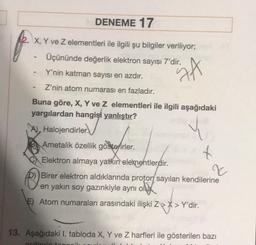 DENEME 17
12. X, Y ve Z elementleri ile ilgili şu bilgiler veriliyor;
- Üçününde değerlik elektron sayısı 7'dir.
- Y'nin katman sayısı en azdır.
- Z'nin atom numarası en fazladır.
7A
Buna göre, X, Y ve Z elementleri ile ilgili aşağıdaki
yargılardan hangisi yanlıştır?
A) Halojendirler.
Y
B) Ametalik özellik gösterirler.
X
C) Elektron almaya yatkın elementlerdir.
Z
D) Birer elektron aldıklarında proton sayıları kendilerine
en yakın soy gazınkiyle aynı olur.
E) Atom numaraları arasındaki ilişki Z > X > Y'dir.
13. Aşağıdaki I. tabloda X, Y ve Z harfleri ile gösterilen bazı